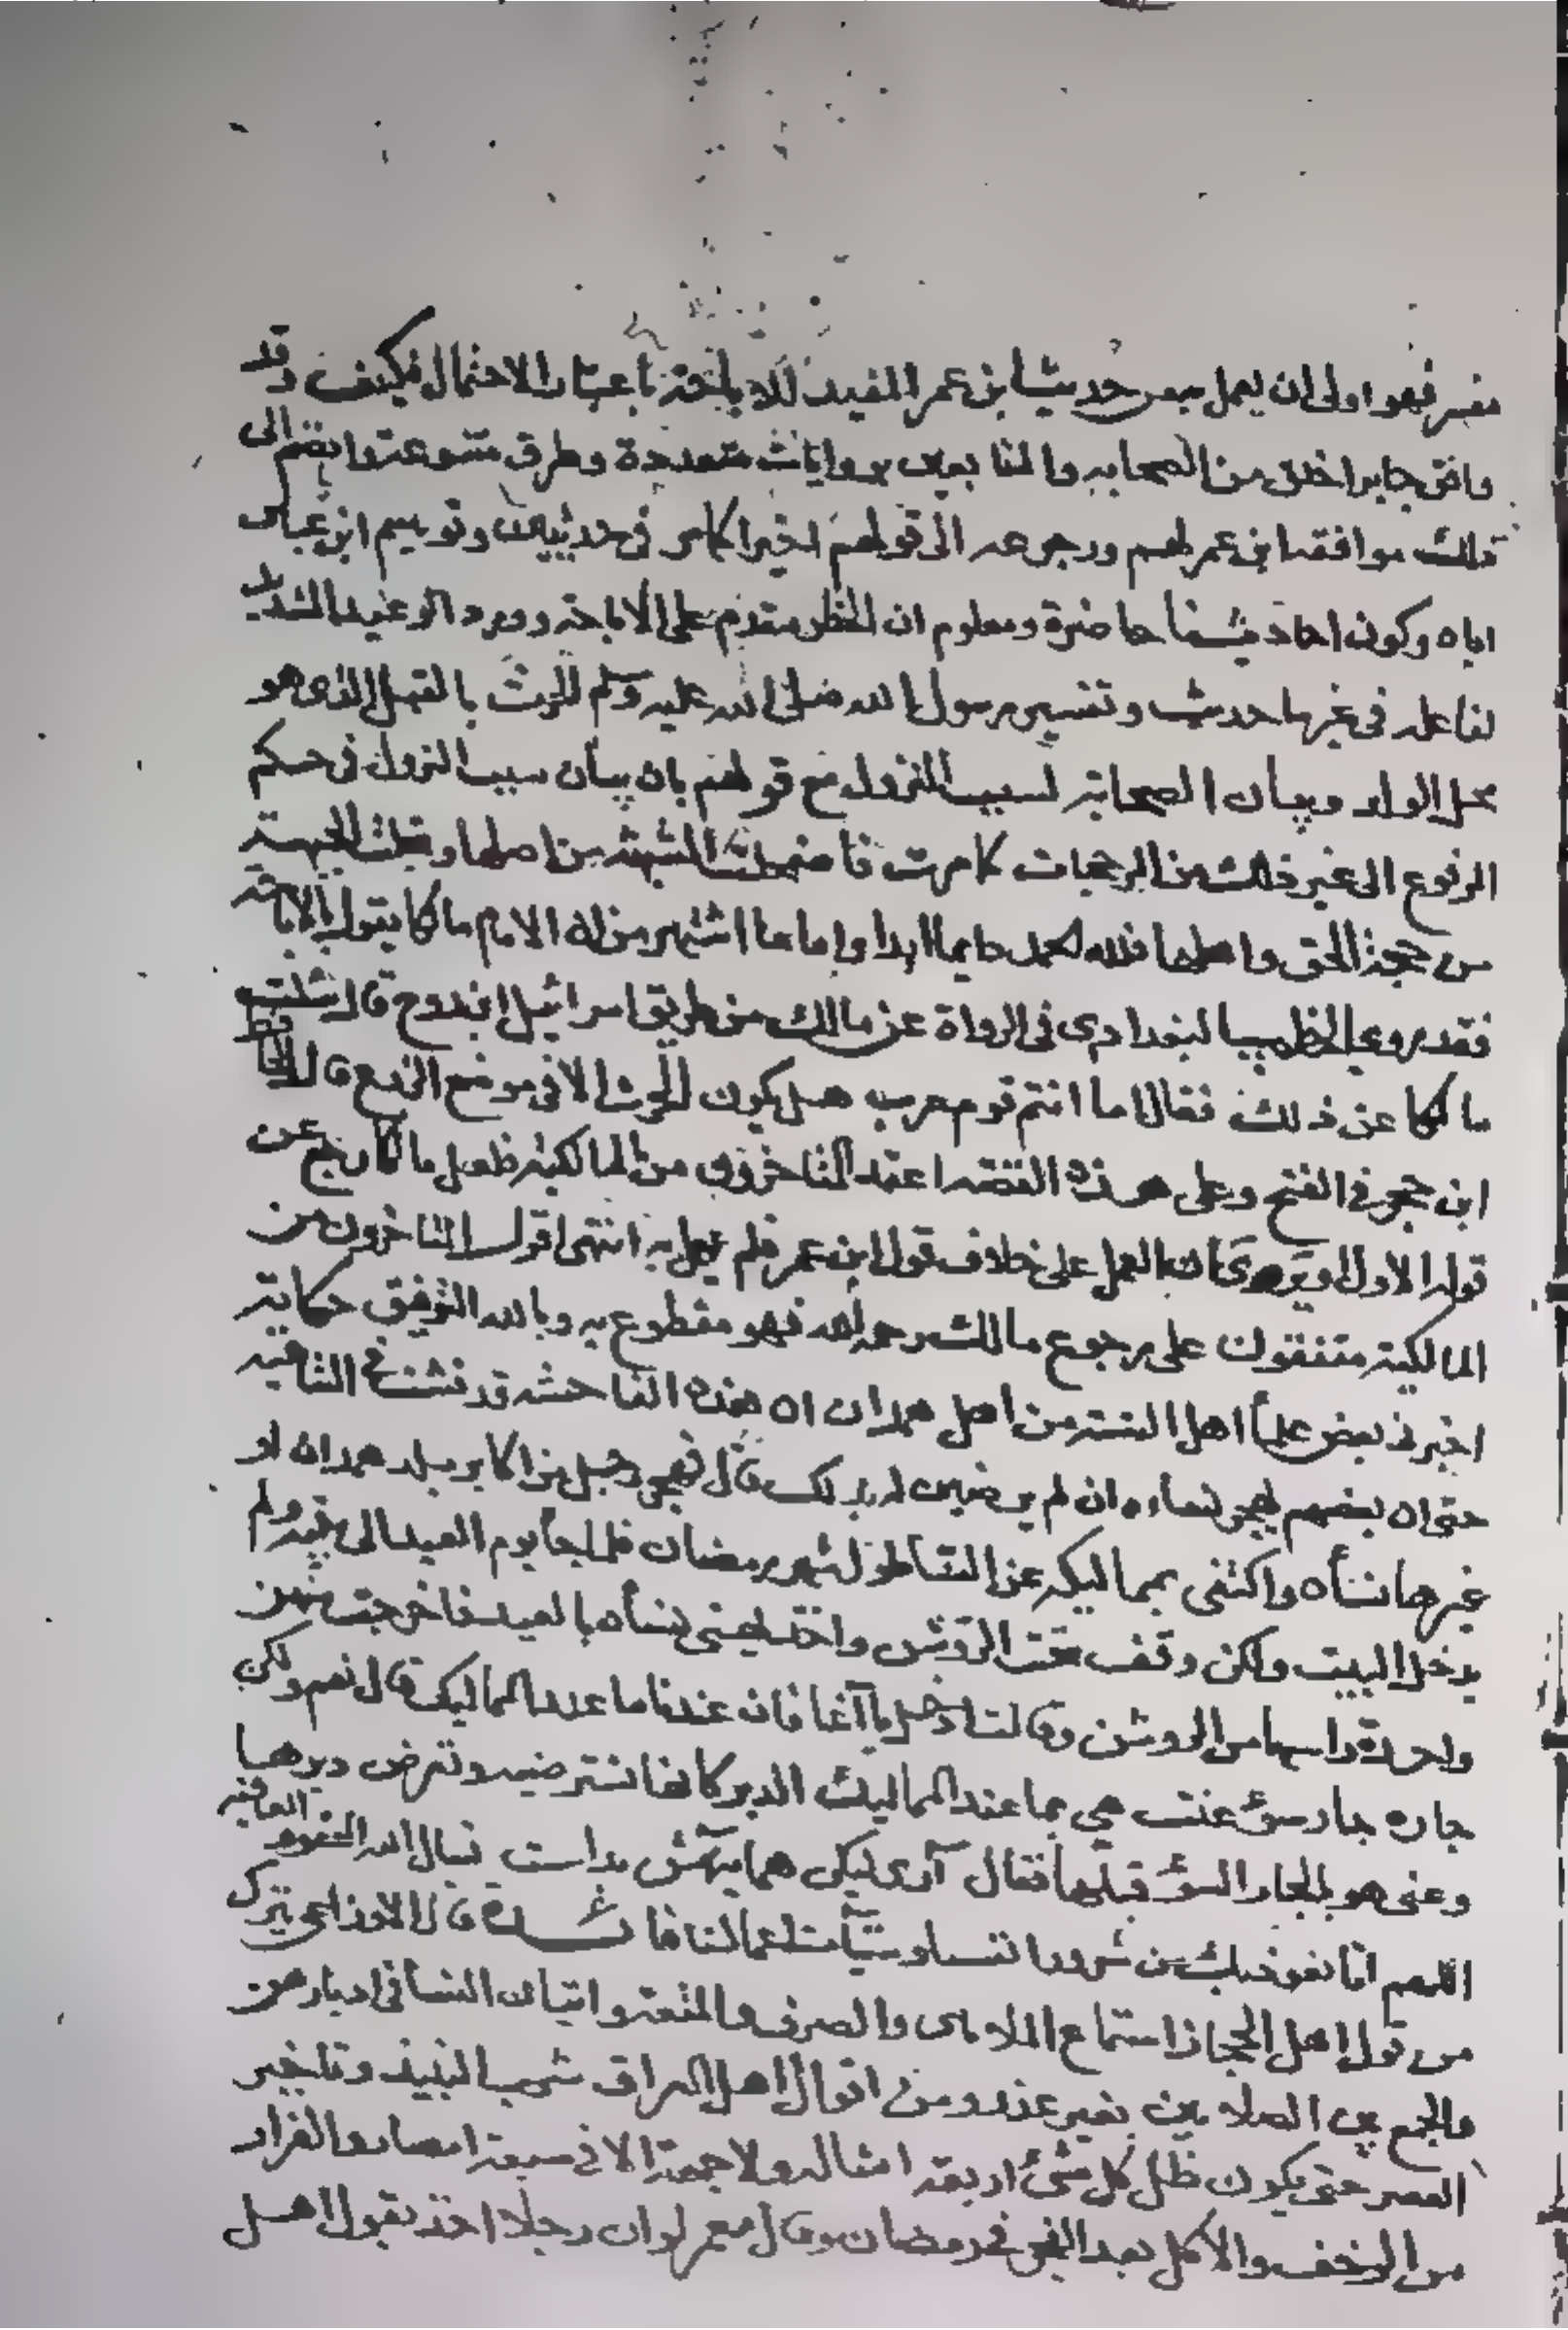 مفسر فهو اولى ان يعمل به من حديث ابن عمر المفيد للاباحة باعتبار الاحتمال فكيف وقد
وافق جابرا خلق من الصحابه والتابعين بروايات متعددة وطرق متنوعة وانضم الى
ذلك موافقة ابن عمر لهم ورجوعه الى قولهم اخيرا كما مر في حديثين وتوهيم ابن عباس
اياه وكون احاديثنا حاضرة ومعلوم ان الحظر مقدم على الاباحة وورد الوعيد الشديد
لفاعله في غيرها حديث وتفسير رسول الله صلى الله عليه وسلم للحرث بالقبل الذى هو
محل الولد وبيان الصحابة لسبب النزول مع قولهم بان بيان سبب النزول في حكم
المرفوع الى غير ذلك من المرجحات كما مرت فاضمحلت الشبهة من اصلها وبقيت الجبهة
من حجة الحق واهلها فلله الحمد دايما ابدا واما ما اشتهر من ان الامام مالكا يقول بالاباحة
فقد روى الخطيب البغدادى في الرواة عن مالك من طريق اسرائيل ابن روح قال سئلت
مالكا عن ذلك فقال ما انتم قوم عرب هل يكون الحرث الا في موضع الزرع قال الحافظ
ابن حجر في الفتح وعلى هذه القصة اعتمد المتاخرون من المالكية فلعل مالكا رجع عن
قوله الاول او يرى ان العمل على خلاف قول ابن عمر فلم يعمل به انتهى اقول المتاخرون من
المالكية متفقون على رجوع مالك رحمه الله فهو مقطوع به وبالله التوفيق حكاية
اخبرني بعض علماء اهل السنة من اهل همدان ان هذه الفاحشه قد فشت في
حتى ان بعضهم يهجر نساءه ان لم يرضين له بذلك قال فهجر رجل من اكابر بلد همدان او
غيرها نساه واكتفى بمماليكه عن النسا طول شهر رمضان فلما جا يوم العيد الى بيته ولم
يدخل البيت ولكن وقف تحت الروشن واخذ يهنى نساه بالعيد فاخرجت منهن
واحدة راسها من الروشن وقالت ادخل يا آغا فان عندنا ما عند المماليك قال نعم ولكن
جاره جار سوء عنت هي بما عند المماليك الدبر كانها تسترضيه وتعرض دبرها
وعنى هو بالجار السوء قبلها فقال آرى ليكن همسايه‌ش بد است نسال الله العفو والعافية
اللهم انا نعوذ بك من شرور انفسنا وسيئات اعمالنا فائدة قال الاوزاعى يترك
من قول اهل الحجاز استماع الملاهى والصرف والمتعة واتيان النسا في ادبارهن
والجمع بين الصلاتين بغير عذر ومن اقوال اهل العراق شرب النبيذ وتاخير
العصر حتى يكون ظل كل شئ اربعة امثاله ولا جمعة الا في سبعة امصار والفرار
من الزحف والاكل بعد الفجر في رمضان وقال معمر لو ان رجلا اخذ بقول اهل